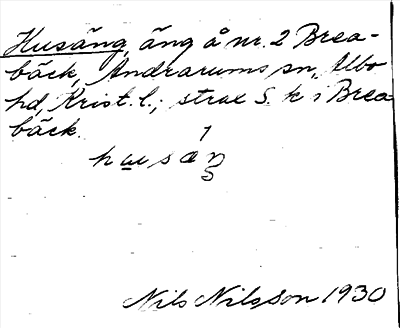 Husäng, äng å nr. 2 Brea-
bäck, Andrarums sn, Albo
hd, Krist. l.; strax S. k i Brea
bäck.
Nils Nilsson 1930